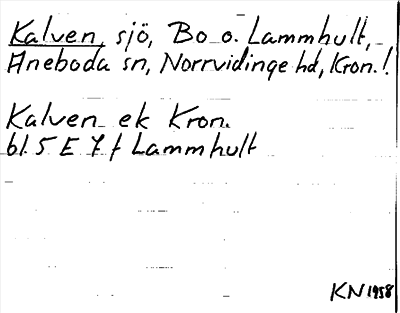 Kalven, sjö, Bo o. Lammhult,
Aneboda sn, Norrvidinge hd, Kron.!
Kalven ek Kron.
bl. 5 E 7 f Lammhult
KN 1958